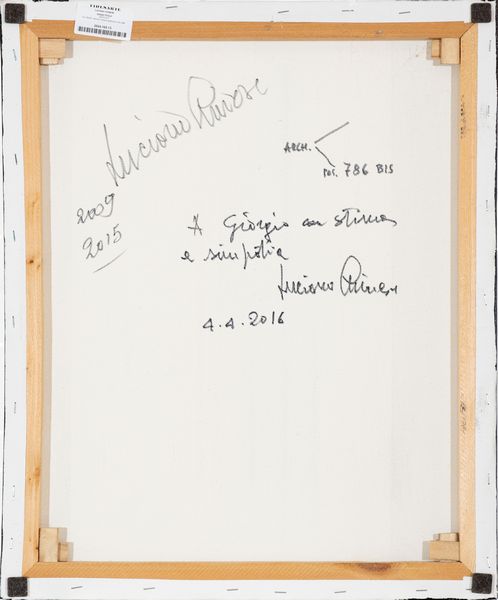 FIDENARTE
Luciano Rinese
ARCH.
POS. 786 BIS
2009
2015
A Giorgio con stima
e simpatia
Luciano Rinese
4.4.2016